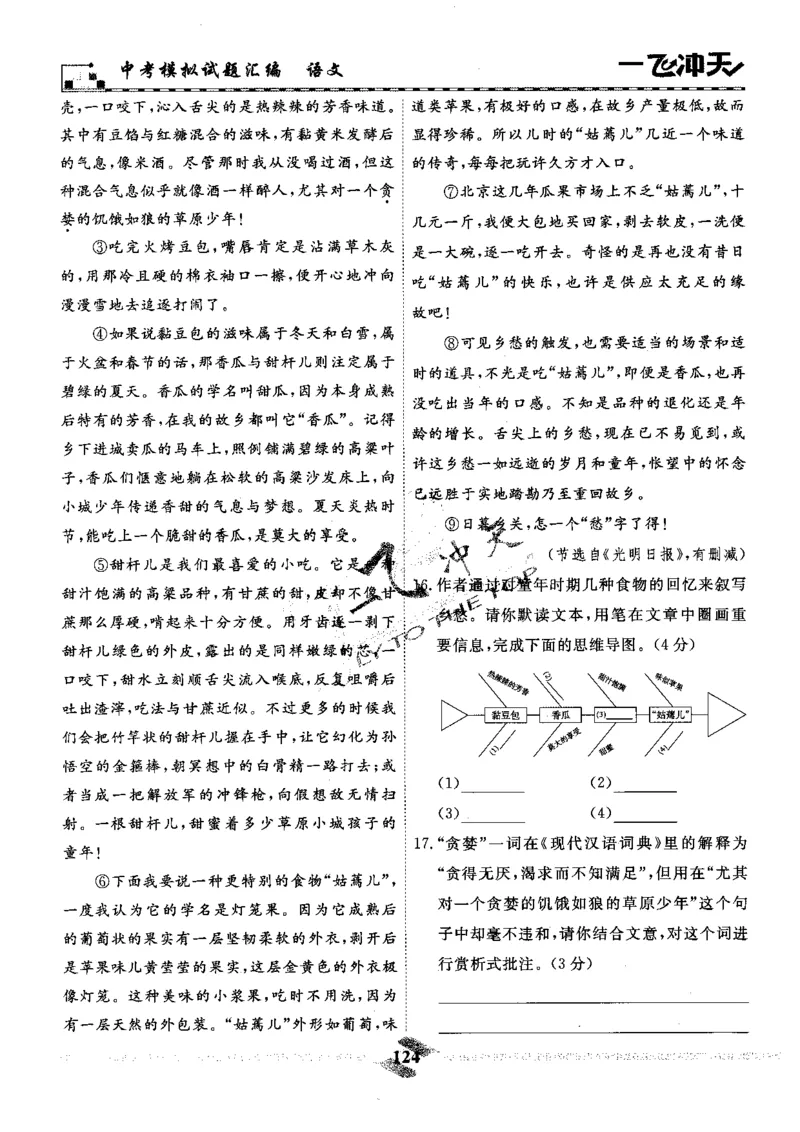 中考模拟试题汇编 语文
一飞冲天
壳,一口咬下,沁入舌尖的是热辣辣的芳香味道。
其中有豆馅与红糖混合的滋味,有黏黄米发酵后
的气息,像米酒。尽管那时我从没喝过酒,但这
种混合气息似乎就像酒一样醉人,尤其对一个贪
婪的饥饿如狼的草原少年!
③吃完火烤豆包,嘴唇肯定是沾满草木灰
的,用那冷且硬的棉衣袖口一擦,便开心地冲向
漫漫雪地去追逐打闹了。
④如果说黏豆包的滋味属于冬天和白雪,属
于火盆和春节的话,那香瓜与甜杆儿则注定属于
碧绿的夏天。香瓜的学名叫甜瓜,因为本身成熟
后特有的芳香,在我的故乡都叫它“香瓜”。记得
乡下进城卖瓜的马车上,照例铺满碧绿的高粱叶
子,香瓜们惬意地躺在松软的高粱沙发床上,向
小城少年传递香甜的气息与梦想。夏天炎热时
节,能吃上一个脆甜的香瓜,是莫大的享受。
⑤甜杆儿是我们最喜爱的小吃。它是一种
甜汁饱满的高粱品种,有甘蔗的甜,皮却不像甘
蔗那么厚硬,啃起来十分方便。用牙齿逐一剥下
甜杆儿绿色的外皮,露出的是同样嫩绿的芯,一
口咬下,甜水立刻顺舌尖流入喉底,反复咀嚼后
吐出渣滓,吃法与甘蔗近似。不过更多的时候我
们会把竹竿状的甜杆儿握在手中,让它幻化为孙
悟空的金箍棒,朝冥想中的白骨精一路打去;或
者当成一把解放军的冲锋枪,向假想敌无情扫
射。一根甜杆儿,甜蜜着多少草原小城孩子的
童年!
⑥下面我要说一种更特别的食物“姑蔫儿”,
一度我认为它的学名是灯笼果。因为它成熟后
的葡萄状的果实有一层坚韧柔软的外衣,剥开后
是苹果味儿黄莹莹的果实,这层金黄色的外衣极
像灯笼。这种美味的小浆果,吃时不用洗,因为
有一层天然的外包装。“姑蔫儿”外形如葡萄,味
道类苹果,有极好的口感,在故乡产量极低,故而
显得珍稀。所以儿时的“姑蔫儿”几近一个味道
的传奇,每每把玩许久方才入口。
⑦北京这几年瓜果市场上不乏“姑蔫儿”,十
几元一斤,我便大包地买回家,剥去软皮,一洗便
是一大碗,逐一吃开去。奇怪的是再也没有昔日
吃“姑蔫儿”的快乐,也许是供应太充足的缘
故吧!
⑧可见乡愁的触发,也需要适当的场景和适
时的道具,不光是吃“姑蔫儿”,即便是香瓜,也再
没吃出当年的口感。不知是品种的退化还是年
龄的增长。舌尖上的乡愁,现在已不易觅到,或
许这乡愁一如远逝的岁月和童年,怅望中的怀念
已远胜于实地踏勘乃至重回故乡。
⑨日暮乡关,怎一个“愁”字了得!
(节选自《光明日报》,有删减)
16.作者通过对童年时期几种食物的回忆来叙写
乡愁。请你默读文本,用笔在文章中圈画重
要信息,完成下面的思维导图。(4分)
热辣辣的芳香
(2)
甜汁饱满
味似苹果
黏豆包
香瓜
(3)
“姑蔫儿”
(1)
莫大的享受
甜蜜
(4)
(1)________ (2)________
(3)________ (4)________
17.“贪婪”一词在《现代汉语词典》里的解释为
“贪得无厌,渴求而不知满足”,但用在“尤其
对一个贪婪的饥饿如狼的草原少年”这个句
子中却毫不违和,请你结合文意,对这个词进
行赏析式批注。(3分)
124